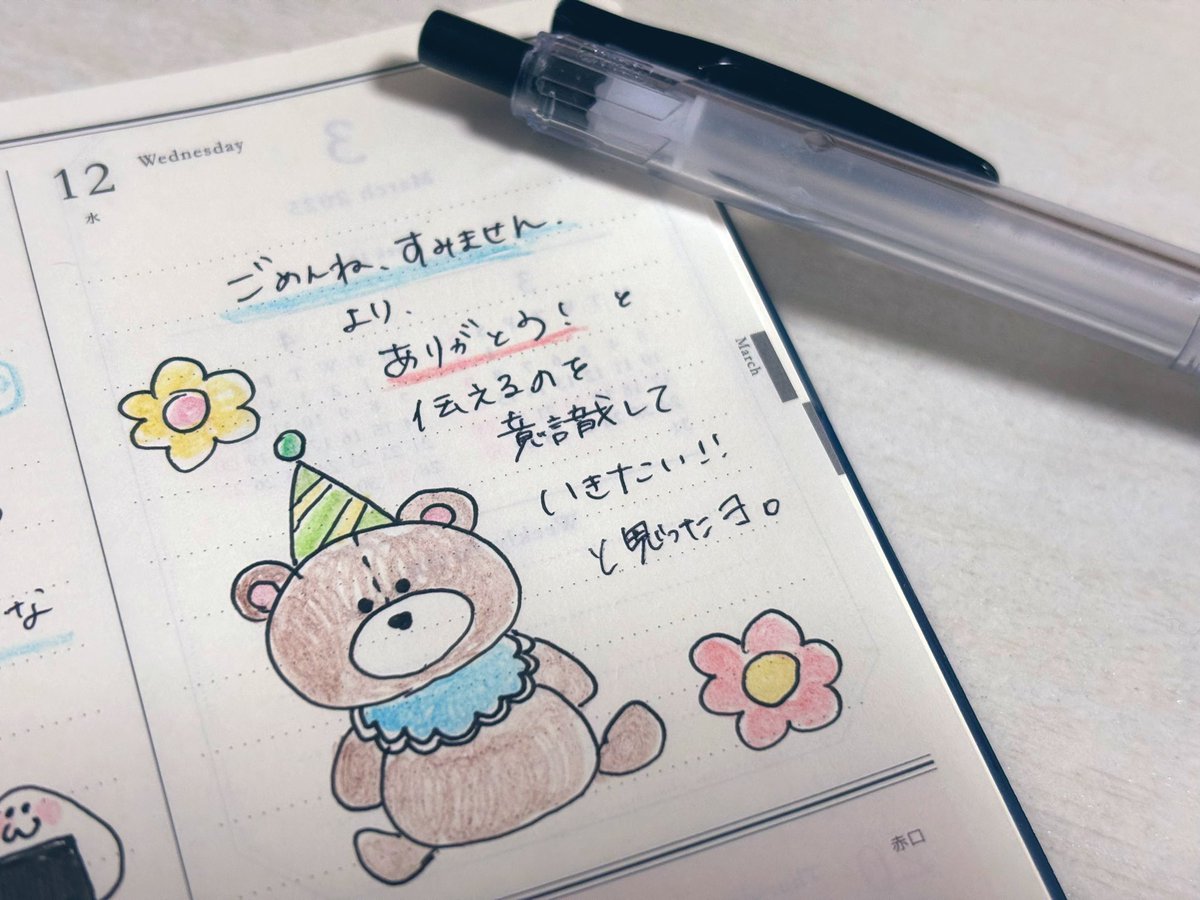 12 Wednesday
水
ごめんね、すみません.
より、
ありがとう！と
伝えるのを
意識して
いきたい!!
と思った日。
March
な
赤口